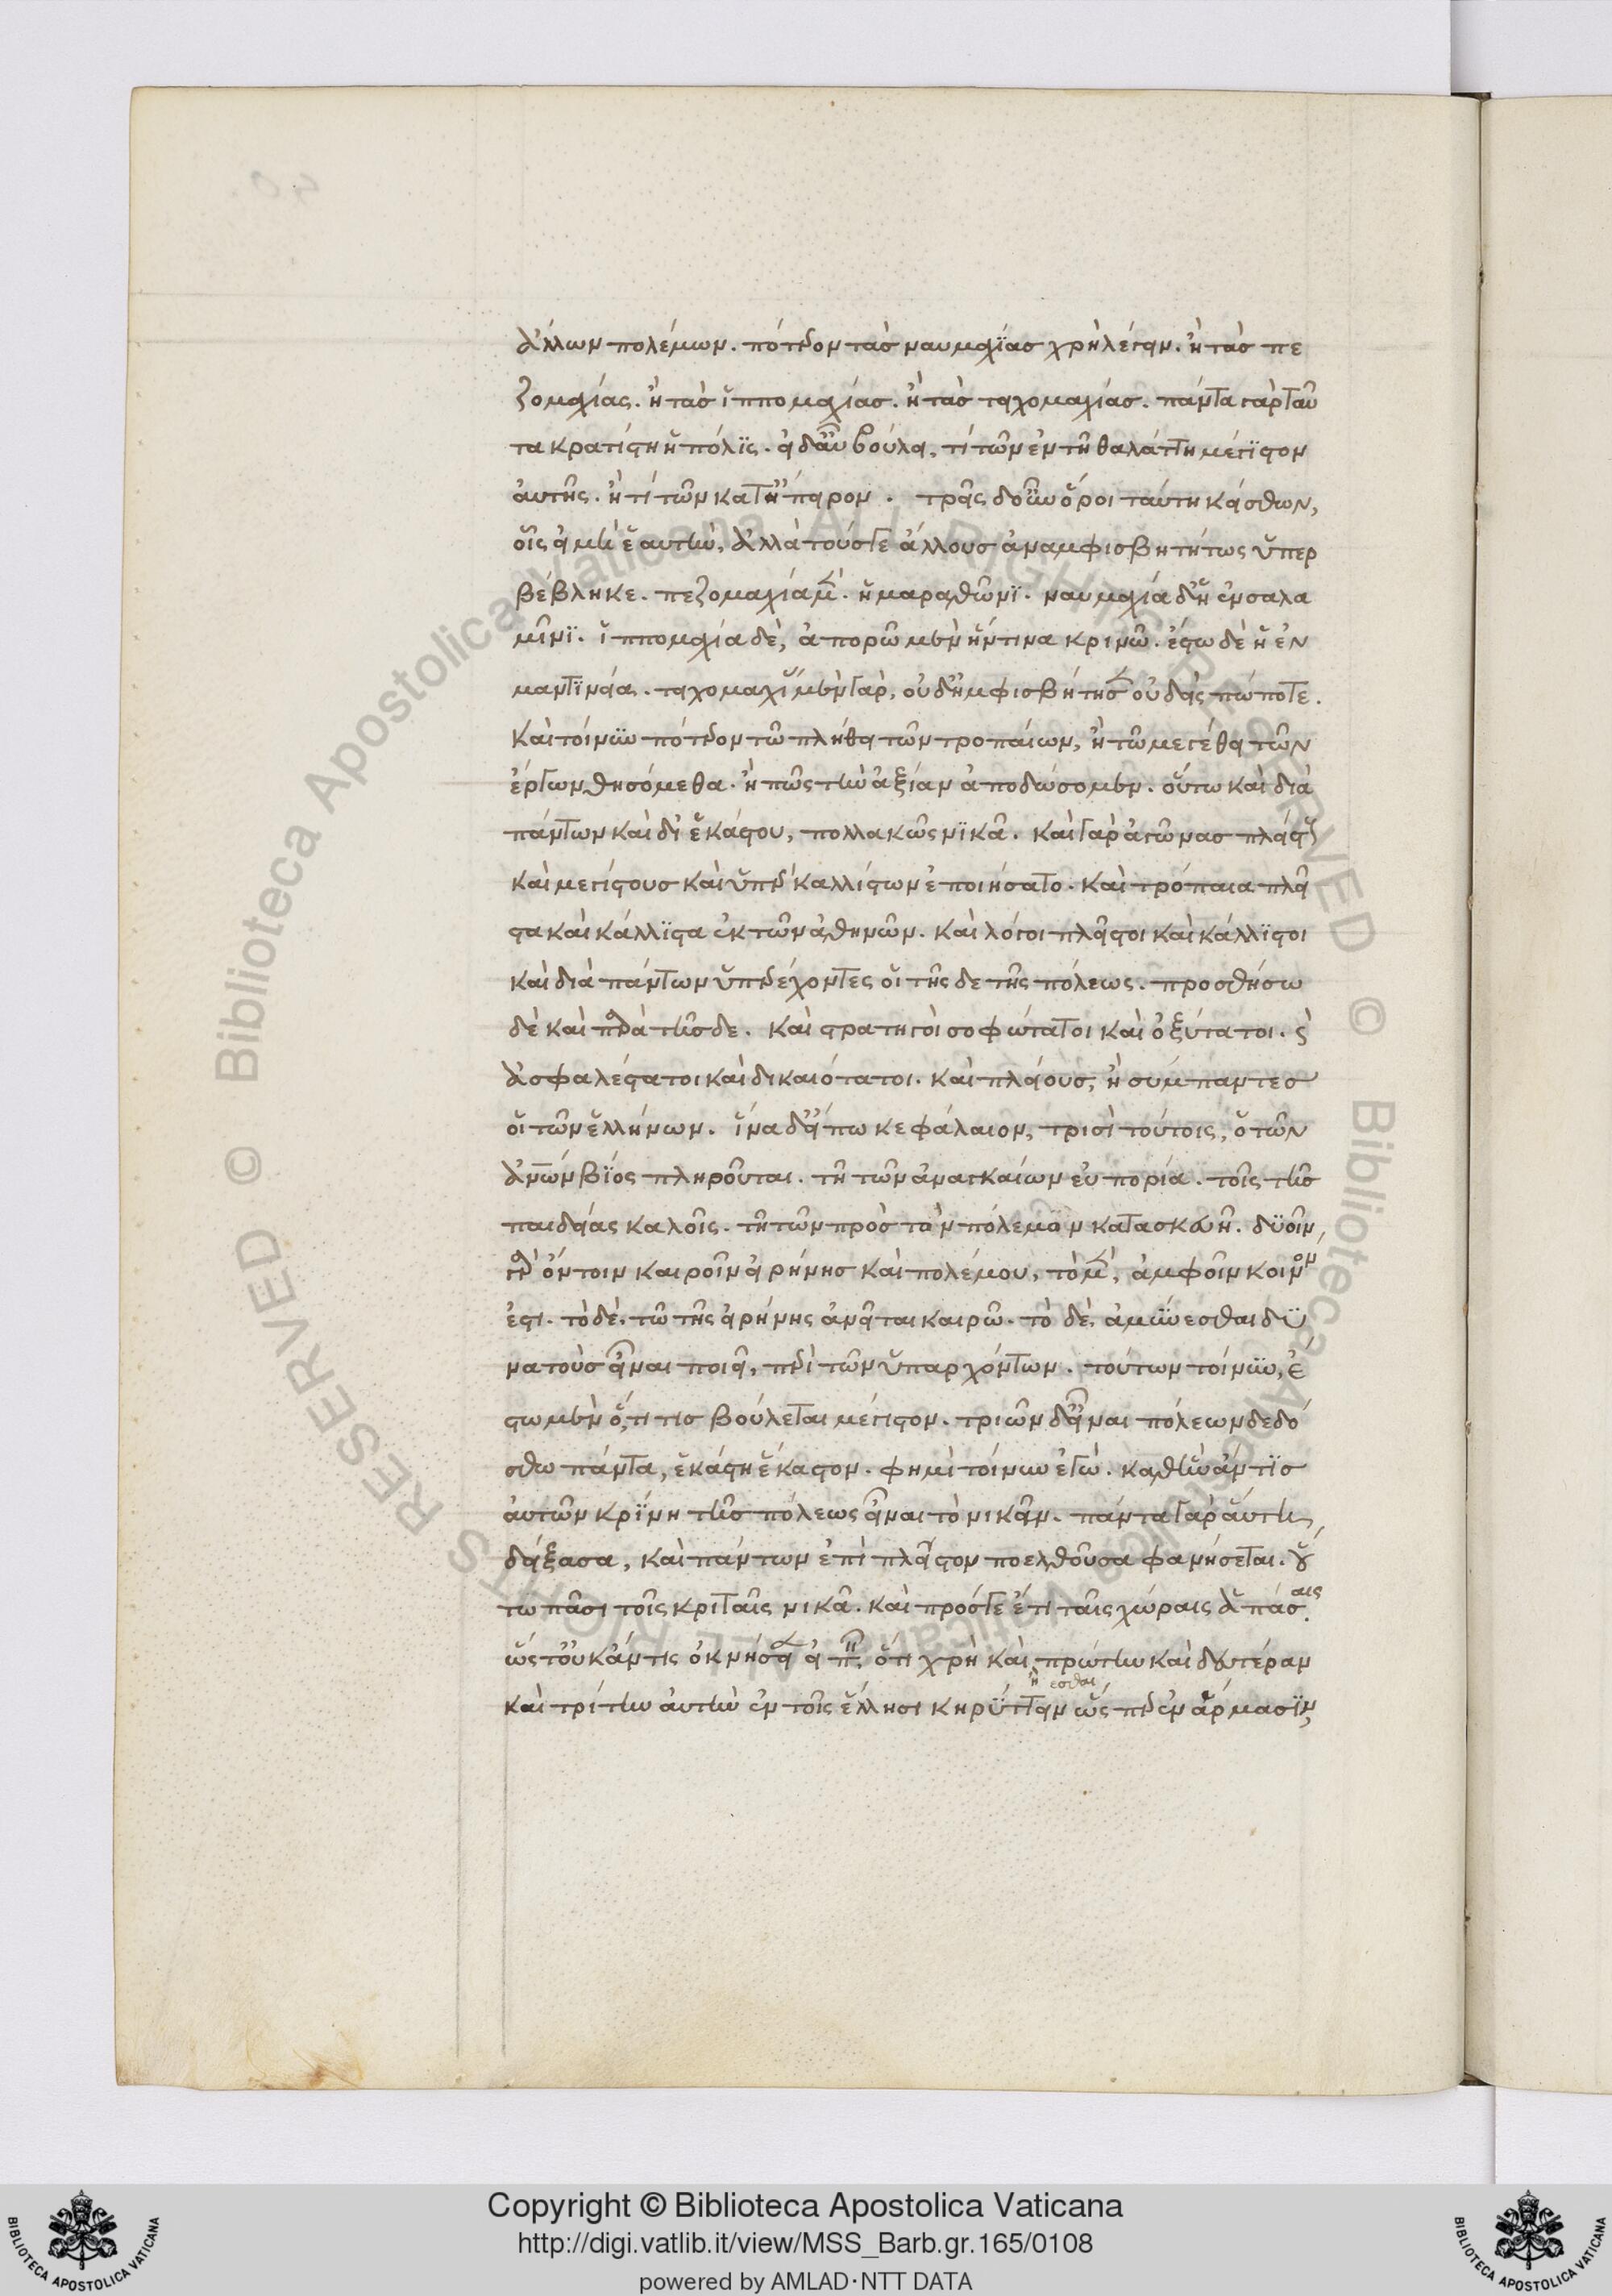 ἄλλων πολέμων. πότερον τὰς ναυμαχίας χρὴ λέγειν. ἢ τὰς πε
ζομαχίας. ἢ τὰς ἱππομαχίας. ἢ τὰς τειχομαχίας. πάντα γὰρ ταῦ
τα κρατίστη ἡ πόλις. εἰ δ' αὖ βούλει, τί τῶν ἐν τῇ θαλάττῃ μέγιστον
αὐτῆς. ἢ τί τῶν κατ' ἤπειρον. τρεῖς δ' οὖν ὅροι ταύτῃ κείσθων,
οἷς εἰ μὴ ἑαυτὴν, ἀλλὰ τούς γε ἄλλους ἀναμφισβητήτως ὑπερ
βέβληκε. πεζομαχία μὲν. ἡ μαραθῶνι. ναυμαχία δ' ἡ ἐν σαλα
μῖνι. ἱππομαχία δὲ, ἀπορῶ μὲν ἥντινα κρινῶ. ἔστω δὲ ἡ ἐν
μαντινείᾳ. τειχομαχεῖν μὲν γὰρ, οὐδ' ἠμφισβήτησεν οὐδεὶς πώποτε.
καὶ τοίνυν πότερον τῷ πλήθει τῶν τροπαίων, ἢ τῷ μεγέθει τῶν
ἔργων θησόμεθα. ἢ πῶς τὴν ἀξίαν ἀποδώσομεν. οὕτω καὶ διὰ
πάντων καὶ δι' ἑκάστου, πολλαχῶς νικᾷ. καὶ γὰρ ἀγῶνας πλείστους
καὶ μεγίστους καὶ ὑπὲρ καλλίστων ἐποιήσατο. καὶ τρόπαια πλεῖ
στα καὶ κάλλιστα ἐκ τῶν ἀθηνῶν. καὶ λόγοι πλεῖστοι καὶ κάλλιστοι
καὶ διὰ πάντων ὑπερέχοντες οἱ τῆς δε τῆς πόλεως. προσθήσω
δὲ καὶ παρὰ τῆσδε. καὶ στρατηγοὶ σοφώτατοι καὶ ὀξύτατοι. καὶ
ἀσφαλέστατοι καὶ δικαιότατοι. καὶ πλείους, ἢ σύμπαντες
οἱ τῶν ἑλλήνων. ἵνα δ' εἴπω κεφάλαιον, τρισὶ τούτοις, ὁ τῶν
ἀνων βίος πληροῦται. τῇ τῶν ἀναγκαίων εὐπορίᾳ. τοῖς τῆς
παιδείας καλοῖς. τῇ τῶν πρὸς τὸν πόλεμον κατασκευῇ. δυοῖν
γὰρ ὄντοιν καιροῖν εἰρήνης καὶ πολέμου, τὸ μὲν, ἀμφοῖν κοινόν
ἐστι. τὸ δὲ. τῷ τῆς εἰρήνης ἀνεῖται καιρῷ. τὸ δὲ. ἀμύνεσθαι δυ
νατοὺς εἶναι ποιεῖ, περὶ τῶν ὑπαρχόντων. τούτων τοίνυν, ἔ
στω μὲν ὅ,τι τις βούλεται μέγιστον. τριῶν δ' εἶναι πόλεων δεδό
σθω πάντα, ἑκάστῃ ἕκαστον. φημὶ τοίνυν ἐγώ. καθ' ἣν ἄν τις
αὐτῶν κρίνῃ τῆς πόλεως εἶναι τὸ νικᾶν. πάντα γὰρ αὕτη
δείξασα, καὶ πάντων ἐπὶ πλεῖστον προελθοῦσα φανήσεται. οὕ
τω πᾶσι τοῖς κριταῖς νικᾷ. καὶ πρόσγε ἔτι ταῖς χώραις ἁπάσαις.
ὥστ' οὐκ ἄν τις ὀκνήσειεν εἰπεῖν, ὅτι χρὴ καὶ πρώτην καὶ δευτέραν
καὶ τρίτην αὐτὴν ἐν τοῖς ἕλλησι κηρύττειν ὥσπερ ἐν ἅρμασιν,
ἢ εσθαι
Copyright © Biblioteca Apostolica Vaticana
http://digi.vatlib.it/view/MSS_Barb.gr.165/0108
powered by AMLAD·NTT DATA